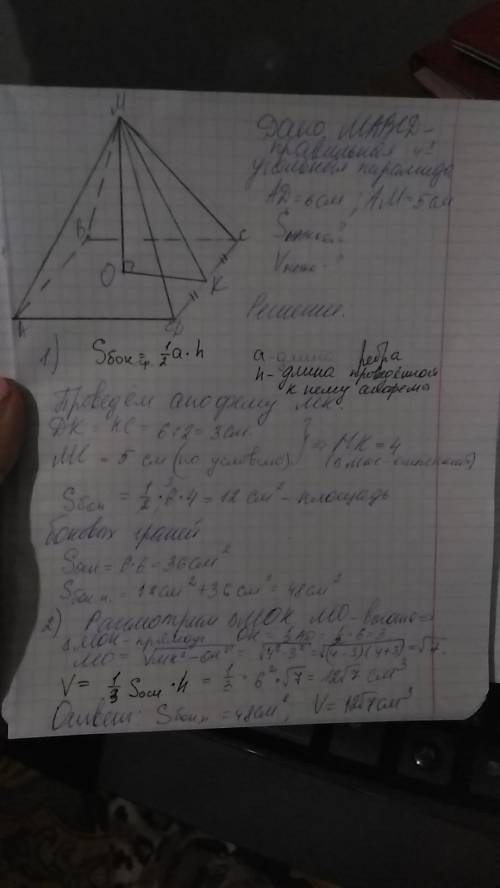 M
B
C
O
K
A
D
Дано MABCD-
правильная 4х
угольная пирамида
AD=6см; AM=5см
Решение.
1) Sбок.гр.=½a·h
a-длина ребра
h-длина проведённой
к нему апофема
Проведем апофему MK.
DK = KC = 6:2=3см.
MC = 5 см (по условию) } => MK=4
Sбок = ½·6·4=12 см² - площадь
боковых граней
Sосн=6·6=36см²
Sбок п. = 12см²+36см²=48см²
2) Рассмотрим ΔMOK, MO-высота =>
ΔMOK- прямоуг. OK=½AD=½·6=3
MO= √MK²-OK² =√4²-3²=√(4-3)(4+3)=√7.
V= ⅓ Sосн·h = ⅓·6²·√7=12√7 см³
Ответ: Sбок п =48см², V=12√7см³